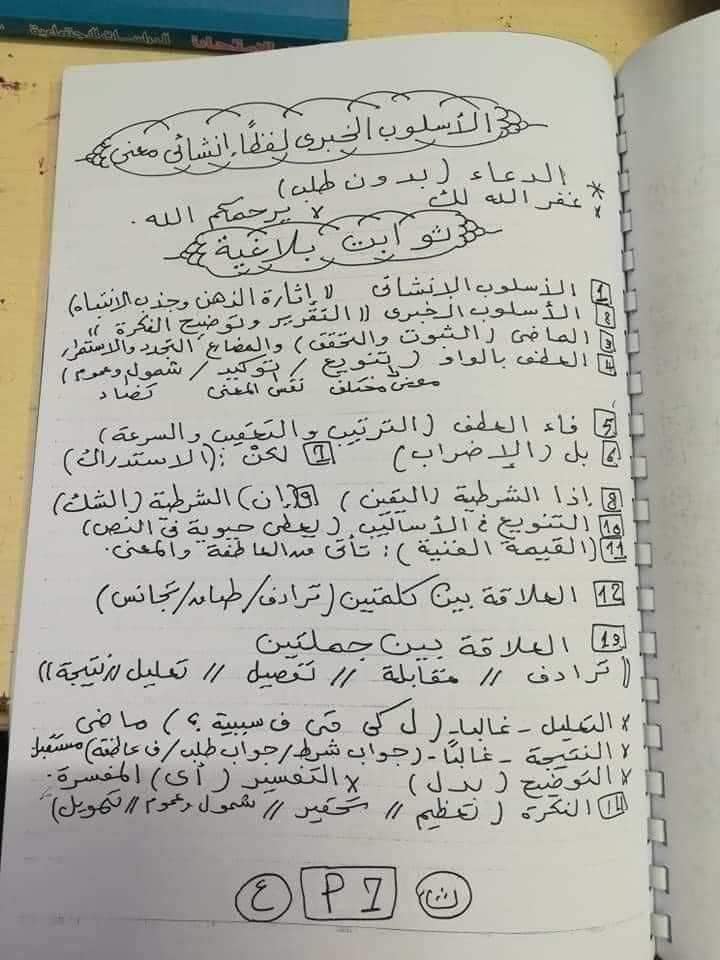 الدراسات الاجتماعية
الأسلوب الخبرى لفظًا، إنشائى معنى
* الدعاء (بدون طلب)
× غفر الله لك × يرحمكم الله .
ثوابت بلاغية
1 الأسلوب الإنشائى (إثارة الذهن وجذب الانتباه)
2 الأسلوب الخبرى (التقرير وتوضيح الفكرة)
3 الماضى (الثبوت والتحقق) والمضارع التجدد والاستمرار
4 العطف بالواو (تنويع / توكيد / شمول وعموم)
معنى مختلف نفس المعنى تضاد
5 فاء العطف (الترتيب والتعقيب والسرعة)
6 بل (الإضراب) 7 لكنْ : (الاستدراك)
8 إذا الشرطية (اليقين) 9 (إن) الشرطية (الشك)
10 التنويع فى الأساليب (يعطى حيوية فى النص)
11 (القيمة الفنية) : تأتى من العاطفة والمعنى .
12 العلاقة بين كلمتين (ترادف / طباق / تجانس)
13 العلاقة بين جملتين
(( ترادف // مقابلة // تفصيل // تعليل // نتيجة ))
× التعليل - غالبا - (ل كى فى ف سببية ؟) ماضى
× النتيجة - غالبًا - (جواب شرط / جواب طلب / ف عاطفة) مستقبل
× التوضيح (بدل) × التفسير (أى) المفسرة .
14 النكرة (تعظيم // تحقير // شمول وعموم // تهويل)
ش P 1 ع